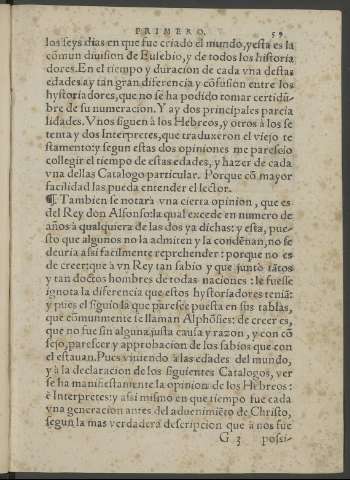 PRIMERO. 59
los seys dias en que fue criado el mundo, y esta es la
cõmun diuision de Eusebio, y de todos los historia
dores. En el tiempo y duracion de cada vna destas
edades ay tan gran diferencia y cõfusion entre los
hystoriadores, que no se ha podido tomar certidũ-
bre de su numeracion. Y ay dos principales parcia
lidades. Vnos siguen à los Hebreos, y otros à los se
tenta y dos Interpretes, que traduxeron el viejo te
stamento: y segun estas dos opiniones me parescio
collegir el tiempo de estas edades, y hazer de cada
vna dellas Catalogo particular. Porque cõ mayor
facilidad las pueda entender el lector.
¶ Tambien se notarà vna cierta opinion, que es
del Rey don Alfonso: la qual excede en numero de
años à qualquiera de las dos ya dichas: y esta, pue-
sto que algunos no la admiten y la condẽnan, no se
deuria assi facilmente reprehender: porque no es
de creer, que à vn Rey tan sabio y que juntò tãtos
y tan doctos hombres de todas naciones: le fuesse
ignota la diferencia que estos hystoriadores teniã:
y pues el siguio la que paresce puesta en sus tablas,
que cõmunmente se llaman Alphõsies: de creer es,
que no fue sin alguna justa causa y razon, y con cõ
sejo, parescer y approbacion de los sabios que con
el estauan. Pues viniendo à las edades del mundo,
y à la declaracion de los siguientes Catalogos, ver
se ha manifiestamente la opinion de los Hebreos:
è Interpretes: y assi mismo en que tiempo fue cada
vna generacion antes del aduenimiẽto de Christo,
segun la mas verdadera descripcion que à nos fue
G 3 possi-